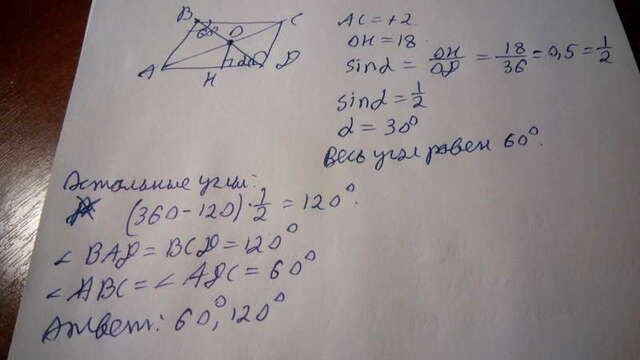 B C
O
A H D
α α
AC = 72
OH = 18
sinα = OH/OD = 18/36 = 0,5 = 1/2
sinα = 1/2
α = 30°
Весь угол равен 60°.
Остальные углы:
(360 - 120) · 1/2 = 120°.
∠BAD = BCD = 120°
∠ABC = ∠ADC = 60°
Ответ: 60°, 120°